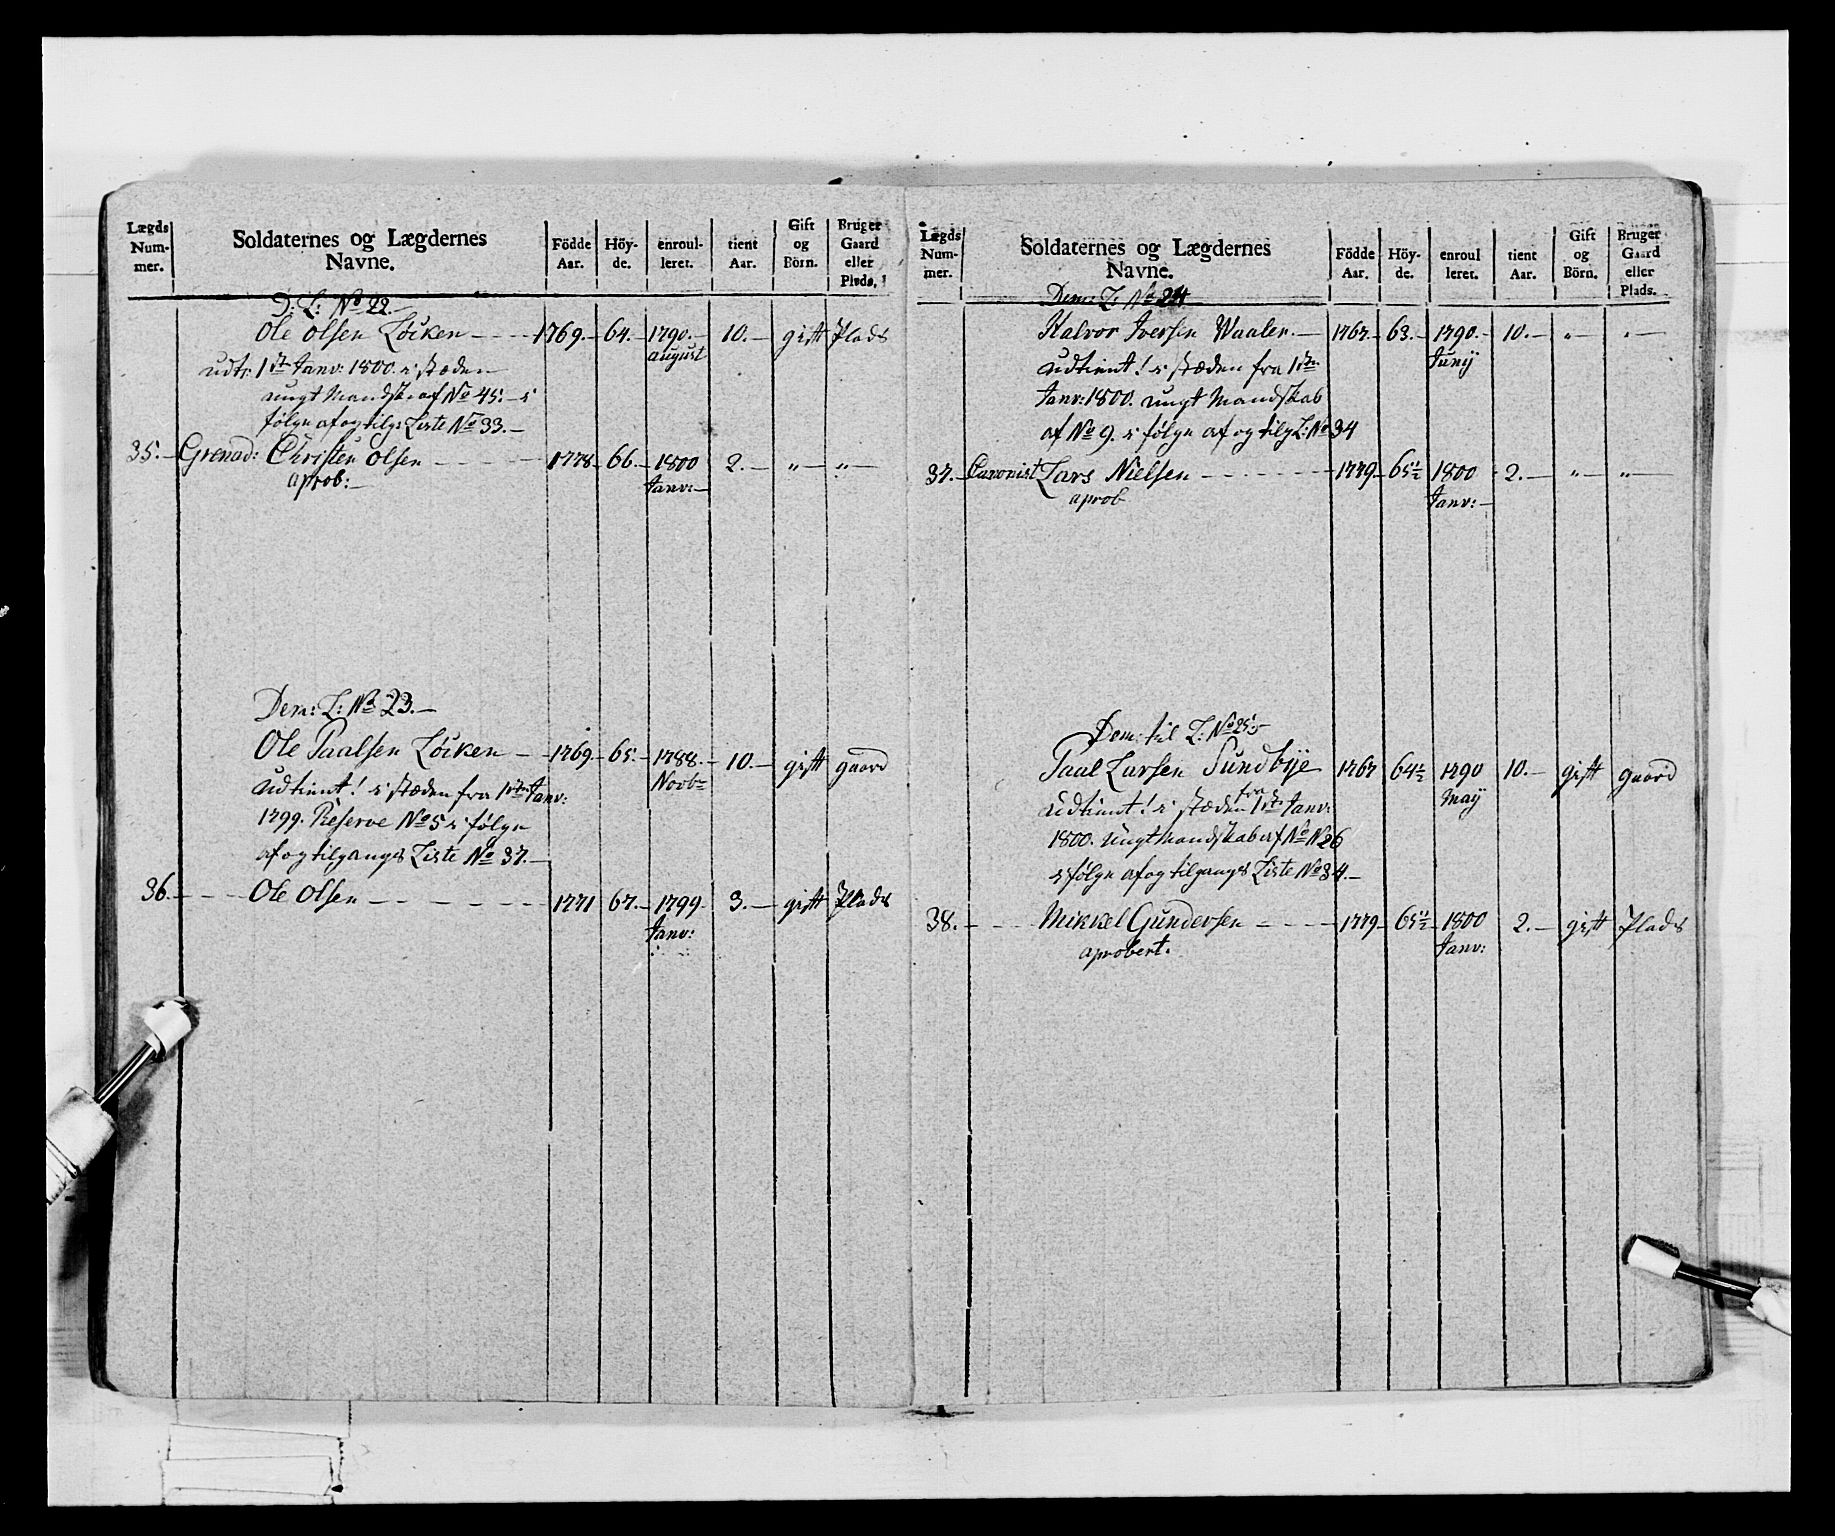 Lægds Num- mer. Soldaternes og Lægdernes Navne. Födde Aar. Höy- de. enroul- leret. tient Aar. Gift og Börn. Bruger Gaard eller Plads.
D: L: No 22.
Ole Olsen Löcken 1769. 64. 1790. 10. gift Plads
august
udtr: 1ste Janv: 1800. i stæden
ungt Mandsk: af No 45. i
følge af og tilg: Liste No 33.
35. Grenad: Christen Olsen 1778 66. 1800 2. " "
aprob: Janv:
Dem: L: No 23.
Ole Paalsen Löcken 1769. 65. 1788. 10. gift gaard
Novbr
udtient! i stæden fra 1ste Janv:
1799. Reserve No 5 i følge
af og tilgangs Liste No 37.
36. Ole Olsen 1771 67. 1799. 3. gift Plads
Janv:
Lægds Num- mer. Soldaternes og Lægdernes Navne. Födde Aar. Höy- de. enroul leret. tient Aar. Gift og Börn. Bruger Gaard eller Plads.
Dem: L: No 24
Halvor Iversen Waaler. 1767. 63. 1790. 10. " "
Junÿ
udtient! i stæden fra 1ste
Janv: 1800. ungt Mandskab
af No 9. i følge af og tilg L: No 34
37. Lars Nielsen 1779. 65½ 1800 2. " "
aprob Janv:
Dem: til L: No 25
Paal Larsen Sundbye 1767 64½ 1790 10. gift gaard
Maÿ
udtient! i stæden fra 1ste Janv:
1800. ungt Mandskab af No 26
i følge af og tilgangs Liste No 34.
38. Mikkel Gundersen 1779 65½ 1800 2. gift Plads
aprobert. Janv: